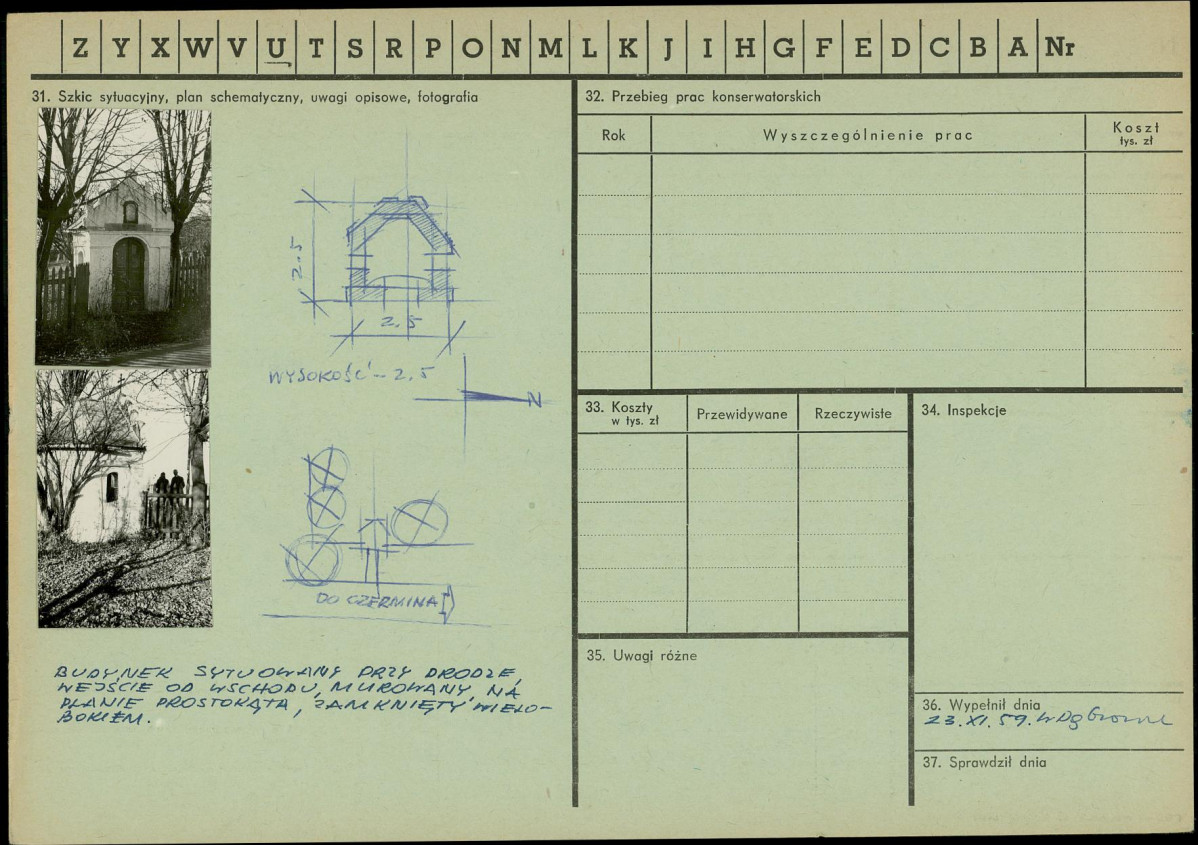 Z Y X W V U T S R P O N M L K J I H G F E D C B A Nr
31. Szkic sytuacyjny, plan schematyczny, uwagi opisowe, fotografia
2.5
2.5
WYSOKOŚĆ – 2.5
N
DO CZERMINA
BUDYNEK SYTUOWANY PRZY DRODZE,
WEJŚCIE OD WSCHODU, MUROWANY, NA
PLANIE PROSTOKĄTA, ZAMKNIĘTY WIELO-
BOKIEM.
32. Przebieg prac konserwatorskich
Rok Wyszczególnienie prac Koszt
tys. zł
33. Koszty
w tys. zł Przewidywane Rzeczywiste
34. Inspekcje
35. Uwagi różne
36. Wypełnił dnia
23.XI.59.
37. Sprawdził dnia